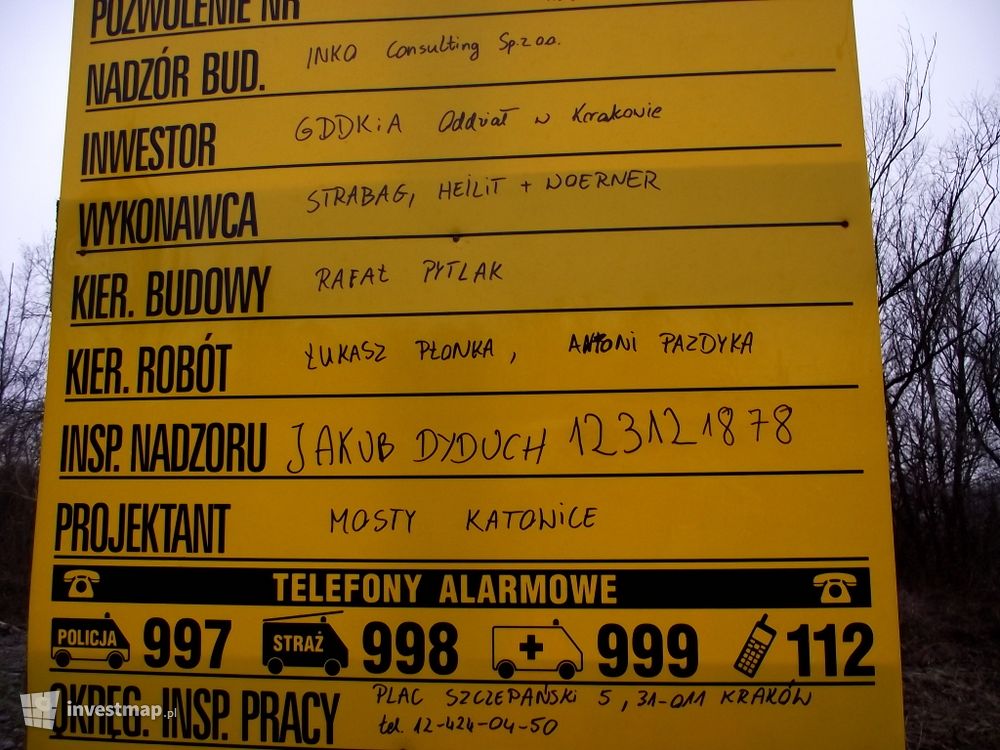 POZWOLENIE NR
NADZÓR BUD. INKO Consulting Sp. z o.o.
INWESTOR GDDKiA Oddział w Krakowie
WYKONAWCA STRABAG, HEILIT + WOERNER
KIER. BUDOWY RAFAŁ PYTLAK
KIER. ROBÓT ŁUKASZ PŁONKA, ANTONI PAZDYKA
INSP. NADZORU JAKUB DYDUCH 123121878
PROJEKTANT MOSTY KATOWICE
TELEFONY ALARMOWE
POLICJA 997 STRAŻ 998 999 112
OKRĘG. INSP. PRACY PLAC SZCZEPAŃSKI 5, 31-011 KRAKÓW
tel. 12-424-04-50
investmap.pl